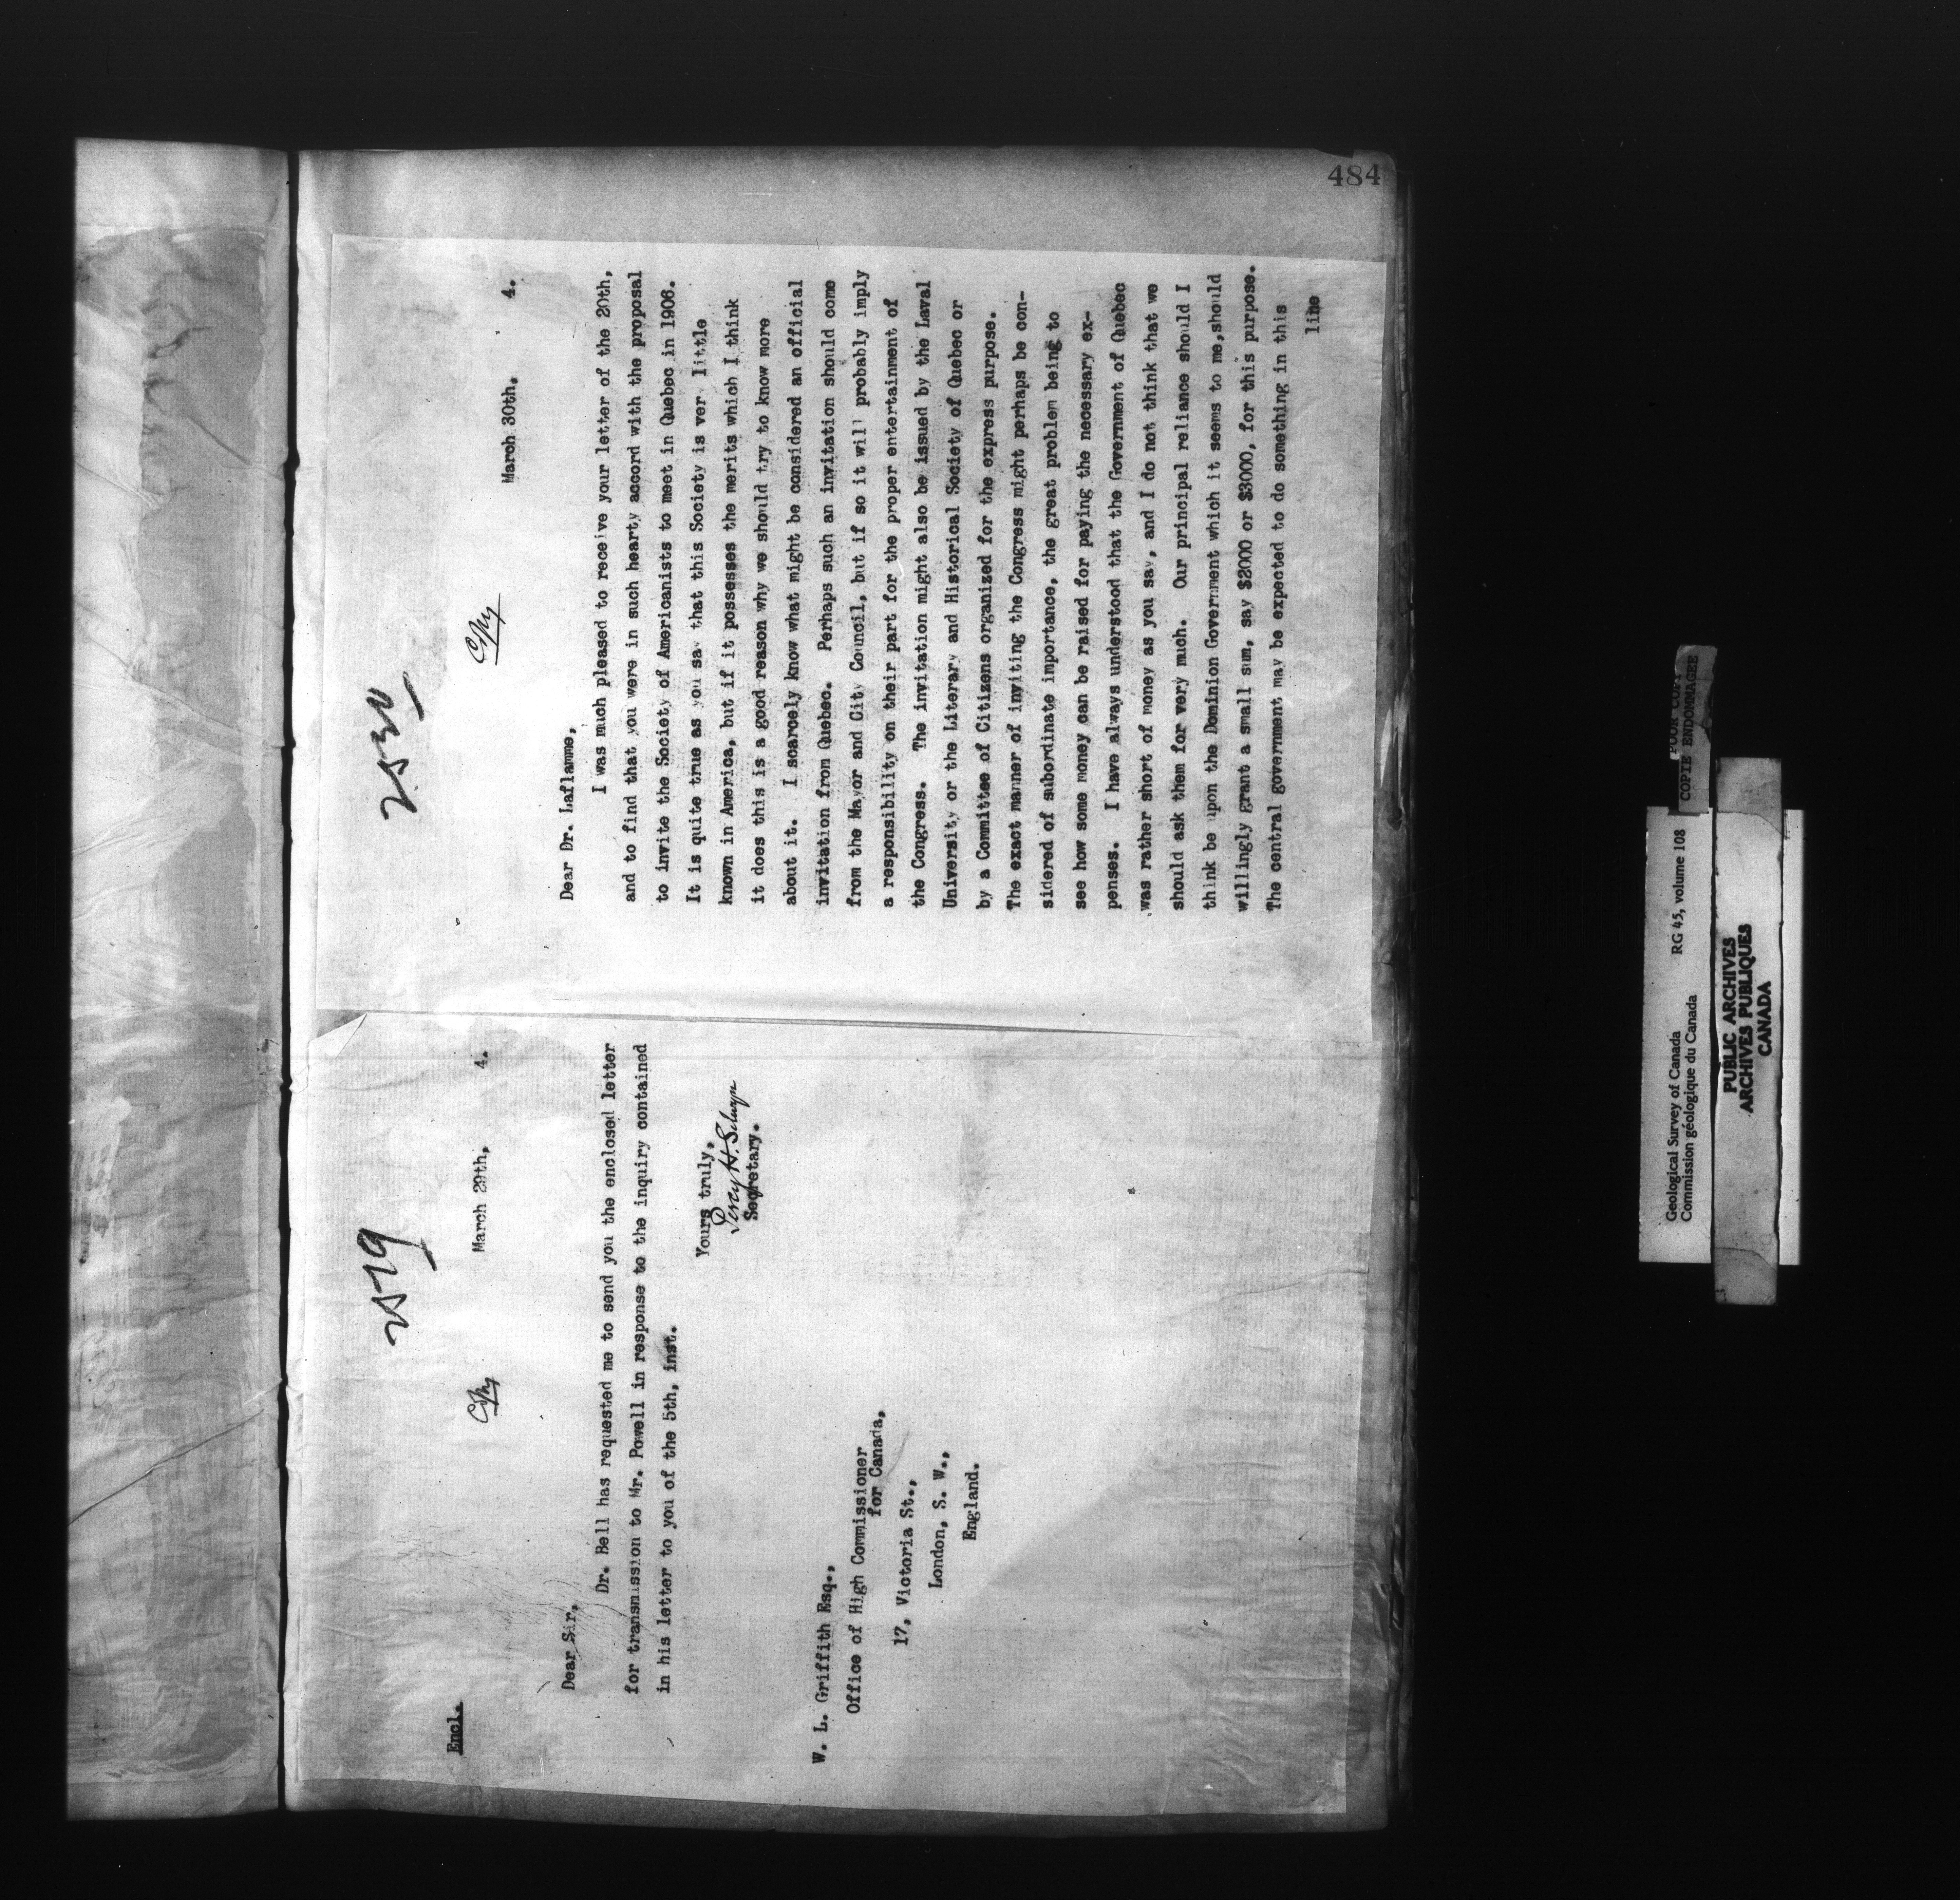 484
2529
Encl.
Copy
March 29th, 4.
Dear Sir,
Dr. Bell has requested me to send you the enclosed letter
for transmission to Mr. Powell in response to the inquiry contained
in his letter to you of the 5th, inst.
Yours truly,
Percy H. Selwyn
Secretary.
W. L. Griffith Esq.,
Office of High Commissioner
for Canada,
17, Victoria St.,
London, S. W.,
England.
2530
Copy
March 30th, 4.
Dear Dr. Laflamme,
I was much pleased to receive your letter of the 20th,
and to find that you were in such hearty accord with the proposal
to invite the Society of Americanists to meet in Quebec in 1906.
It is quite true as you say that this Society is very little
known in America, but if it possesses the merits which I think
it does this is a good reason why we should try to know more
about it. I scarcely know what might be considered an official
invitation from Quebec. Perhaps such an invitation should come
from the Mayor and City Council, but if so it will probably imply
a responsibility on their part for the proper entertainment of
the Congress. The invitation might also be issued by the Laval
University or the Literary and Historical Society of Quebec or
by a Committee of Citizens organized for the express purpose.
The exact manner of inviting the Congress might perhaps be con-
sidered of subordinate importance, the great problem being to
see how some money can be raised for paying the necessary ex-
penses. I have always understood that the Government of Quebec
was rather short of money as you say, and I do not think that we
should ask them for very much. Our principal reliance should I
think be upon the Dominion Government which it seems to me,should
willingly grant a small sum, say $2000 or $3000, for this purpose.
The central government may be expected to do something in this
line
Geological Survey of Canada RG 45, volume 108
Commission géologique du Canada
POOR COPY
COPIE ENDOMMAGEE
PUBLIC ARCHIVES
ARCHIVES PUBLIQUES
CANADA